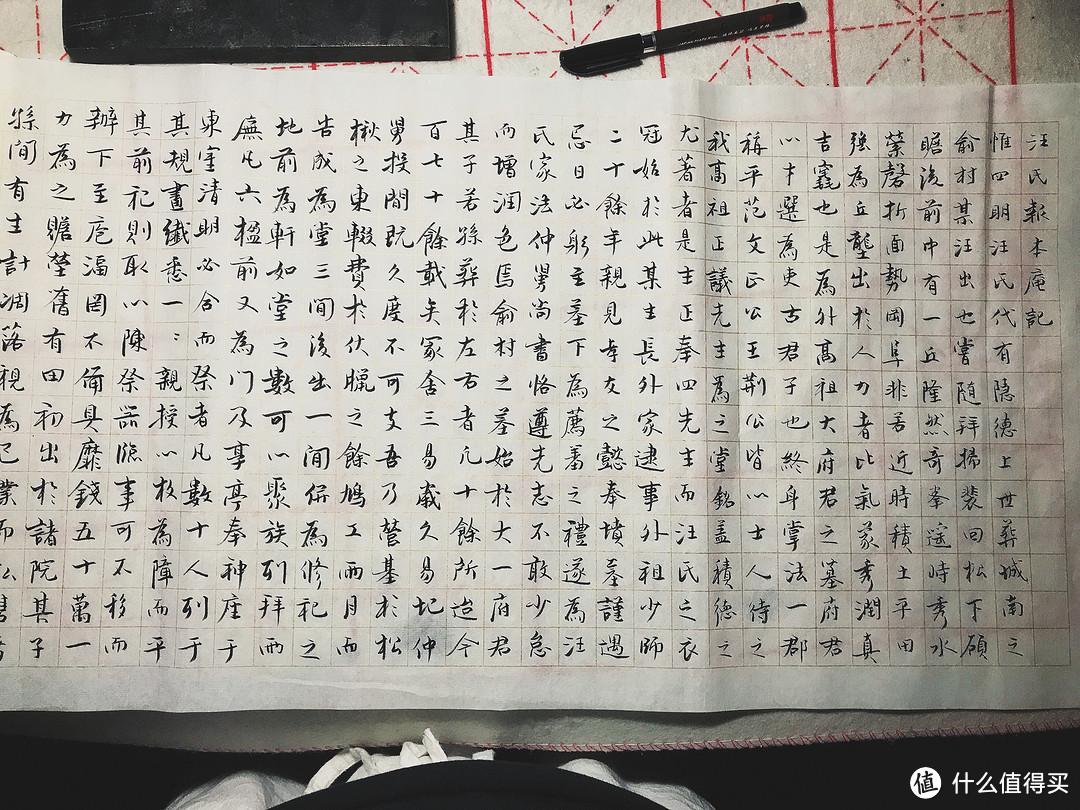 汪氏報本庵記
惟四明汪氏代有隐德上世葬城南之
俞村某汪出也嘗随拜掃裴回松下顧
瞻後前中有一丘隆然奇峯遥時秀水
縈磬折面勢岡阜非若近時積土平田
强為丘壟出於人力者比氣象秀潤真
吉竁也是為外髙祖大府君之墓府君
以才選為吏古君子也終身掌法一郡
稱平范文正公王荆公皆以士人待之
我髙祖正議先生為之堂銘盖積德之
尤著者是生正奉四先生而汪氏之衣
冠始於此某生長外家逮事外祖少師
二十餘年親見孝友之懿奉墳墓謹遇
忌日必躬至墓下為薦羞之禮遂為汪
氏家法仲舅尚書恪遵先志不敢少怠
而增润色焉俞村之墓始於大一府君
其子若孫葬於左右者凡十餘所迨今
百七十餘載矣冢舍三易歲久易圮仲
舅投閒既久度不可支吾乃營基於松
楸之東輟費於伏臘之餘鳩工兩月而
告成為堂三間後出一間併為修祀之
地前為軒如堂之數可以聚族列拜兩
廡凡六楹前又為門及亭亭奉神座于
東室清明必合而祭者凡數十人列于
其規畫纖悉一〻親授以板為障而平
其前祀則取以陳祭器臨事可不移而
辦下至庖湢罔不備具靡錢五十萬一
力為之贍塋舊有田初出於諸院其子
孫间有生計凋落視為己業而私售者
值 什么值得买